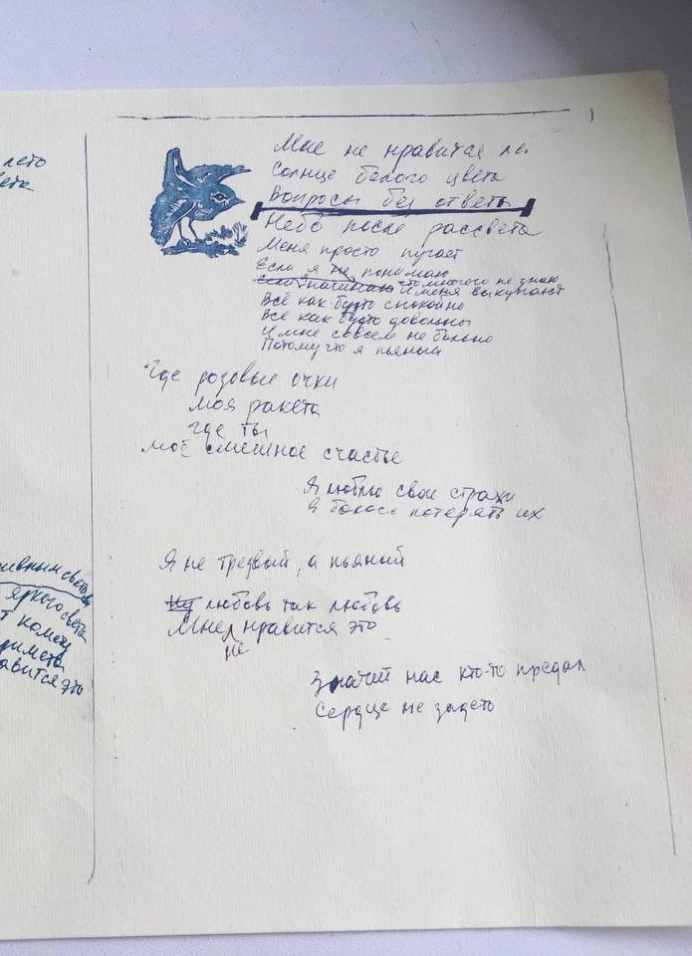 лето
Мне не нравится ле
Солнце белого цвета
Вопросы без ответа
Небо после рассвета
Меня просто пугает
Если я не понимаю
Если начинаю то многого не знаю
И меня выкупают
Всё как будто спокойно
Все как будто довольны
И мне совсем не больно
Потому что я пьяный
Где розовые очки
моя ракета
где ты
моё смешное счастье
Я люблю свои страхи
Я боюсь потерять их
Я не трезвый, а пьяный
Ну любовь так любовь
Мне не нравится это
Значит нас кто-то предал
Сердце не задето
яркого света
т комету
авится это